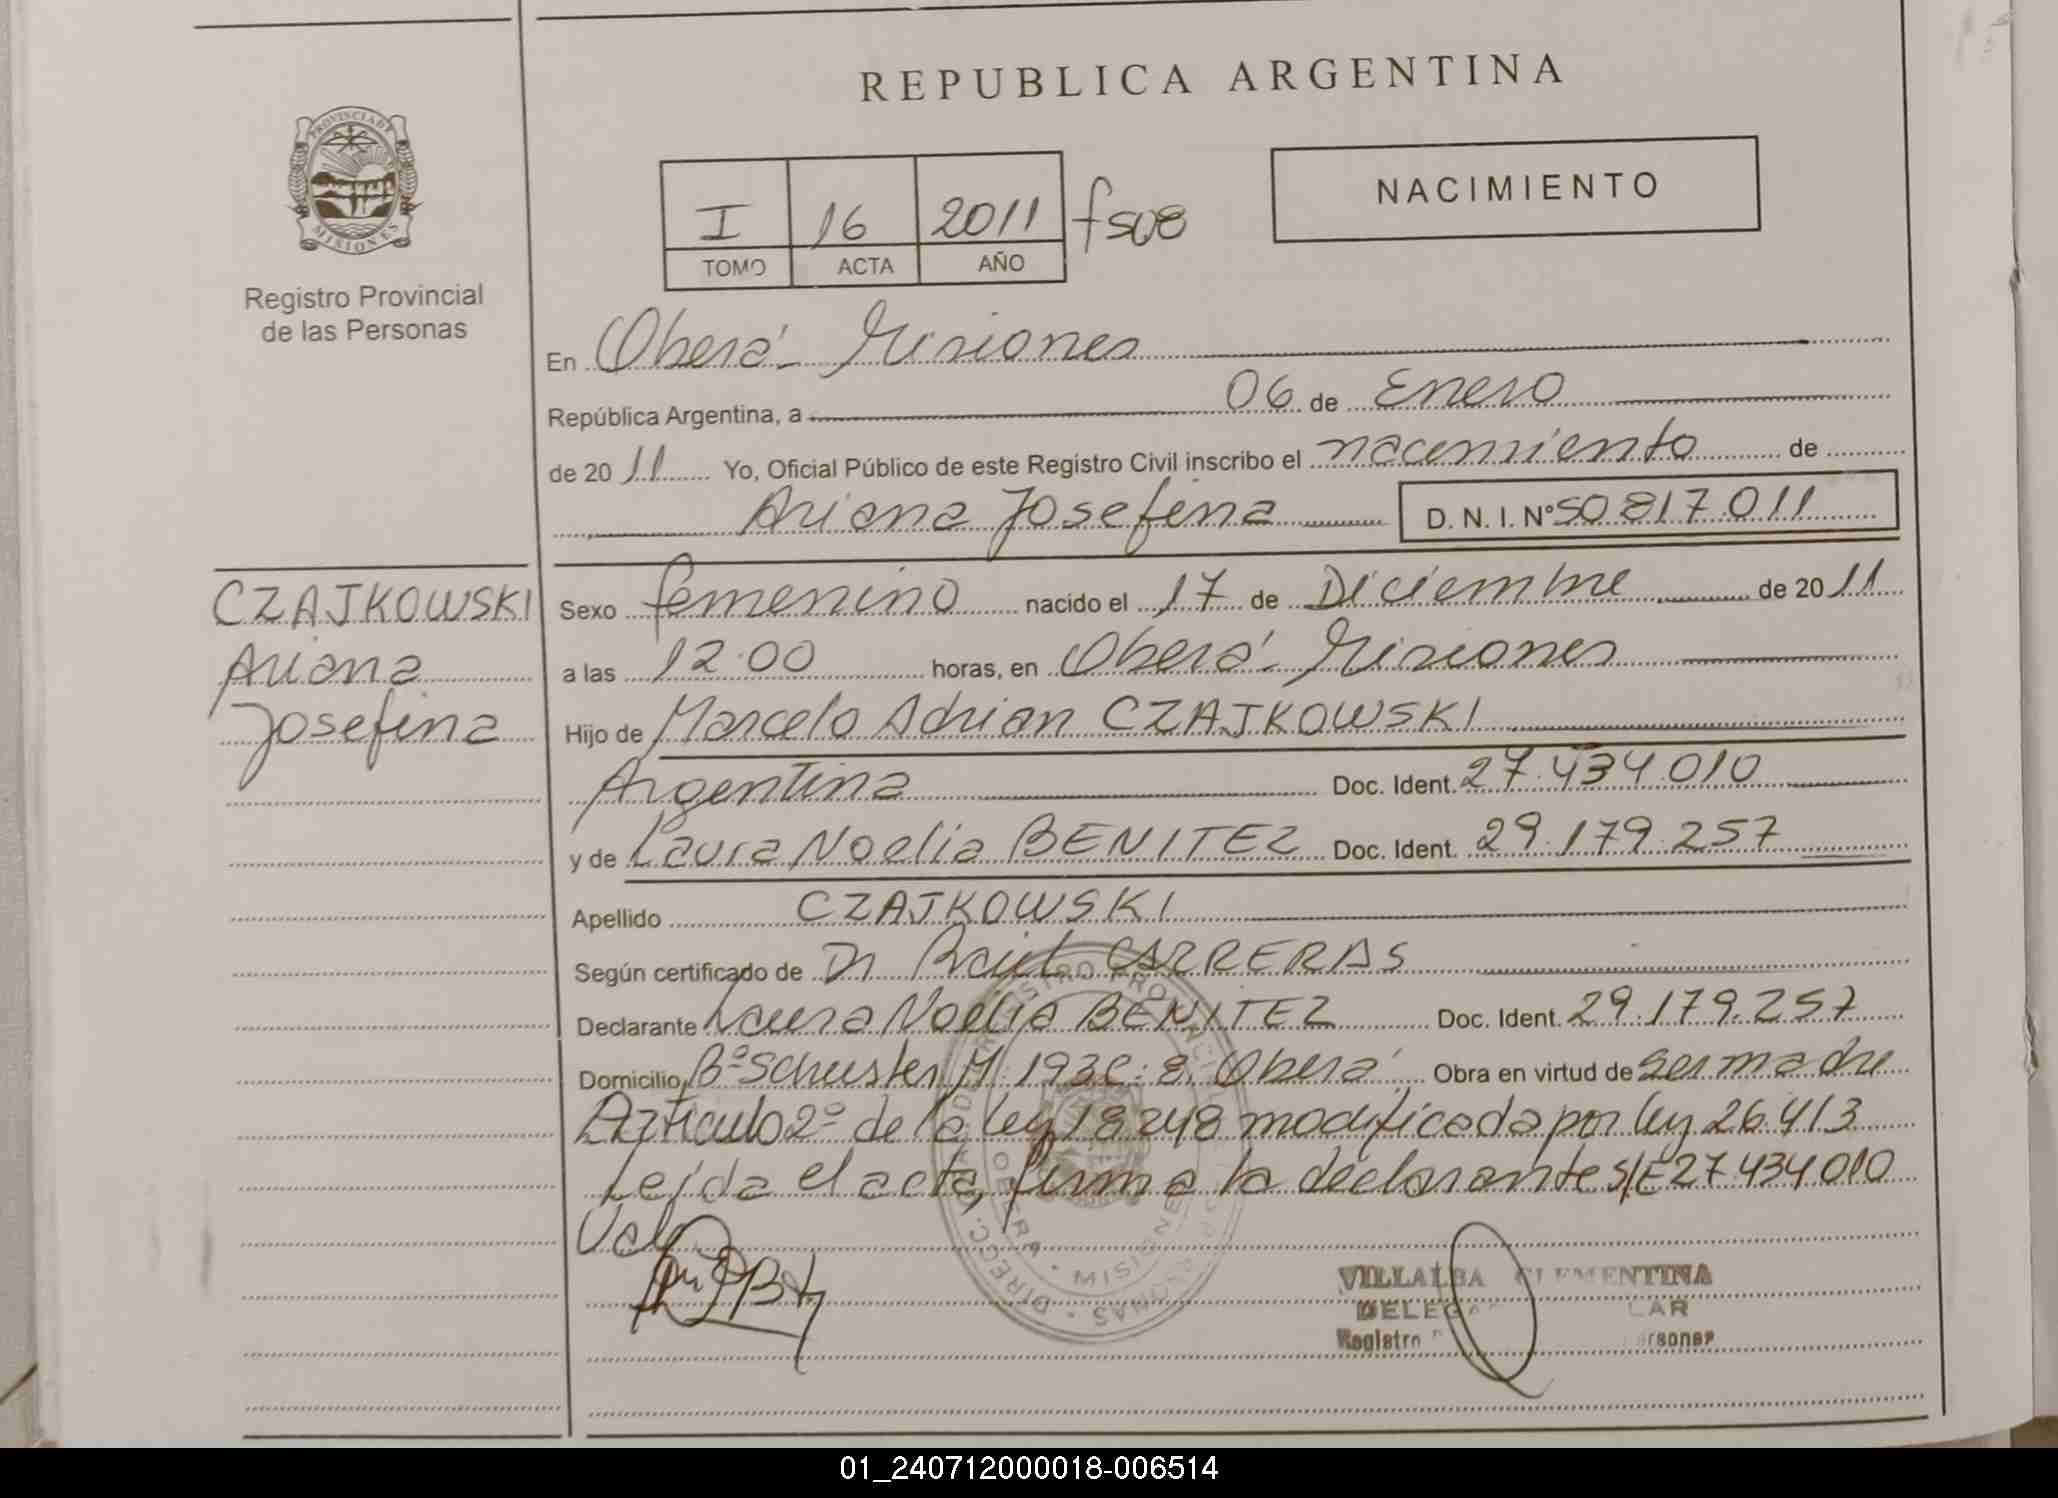 REPUBLICA ARGENTINA
PROVINCIA DE
MISIONES
Registro Provincial
de las Personas
NACIMIENTO
I 16 2011 fs08
TOMO ACTA AÑO
En Oberá - Misiones
República Argentina, a 06 de Enero
de 2011 Yo, Oficial Público de este Registro Civil inscribo el nacimiento de
Ariana Josefina D. N. I. N° 50 817 011
CZAJKOWSKI
Ariana
Josefina
Sexo femenino nacido el 17 de Diciembre de 2011
a las 12.00 horas, en Oberá - Misiones
Hijo de Marcelo Adrian CZAJKOWSKI
Argentina Doc. Ident. 27.434.010
y de Laura Noelia BENITEZ Doc. Ident. 29.179.257
Apellido CZAJKOWSKI
Según certificado de Dr Raúl CARRERAS
Declarante Laura Noelia BENITEZ Doc. Ident. 29.179.257
Domicilio Bº Schuster M 193 C: 8. Oberá Obra en virtud de ser madre
Artículo 2º de la ley 18248 modificada por ley 26.413
Leída el acta, firma la declarante S/E 27 434 010
Vale
VILLALBA CLEMENTINA
Registro
01_240712000018-006514